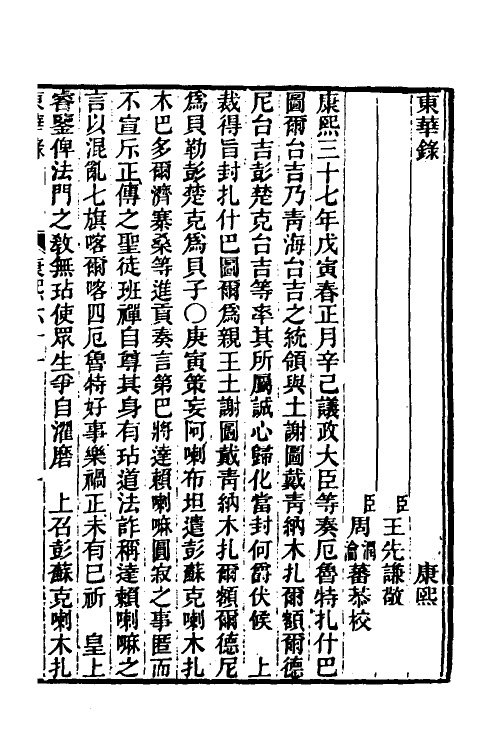 東華錄　康熙
臣王先謙敬
臣周潤蕃恭校
瀹
康熙三十七年戊寅春正月辛己議政大臣等奏厄魯特扎什巴
圖爾台吉乃靑海台吉之統領與土謝圖戴靑納木扎爾額爾德
尼台吉彭楚克台吉等率其所屬誠心歸化當封何爵伏候　上
裁得旨封扎什巴圖爾爲親王土謝圖戴靑納木扎爾額爾德尼
爲貝勒彭楚克爲貝子○庚寅策妄阿喇布坦遣彭蘇克喇木扎
木巴多爾濟寨桑等進貢奏言第巴將達賴喇嘛圓寂之事匿而
不宣斥正傳之聖徒班禪自尊其身有玷道法詐稱達賴喇嘛之
言以混亂七旗喀爾喀四厄魯特好事樂禍正未有已祈　皇上
睿鑒俾法門之敎無玷使眾生爭自濯磨　上召彭蘇克喇木扎
東華錄　康熙六十一　一